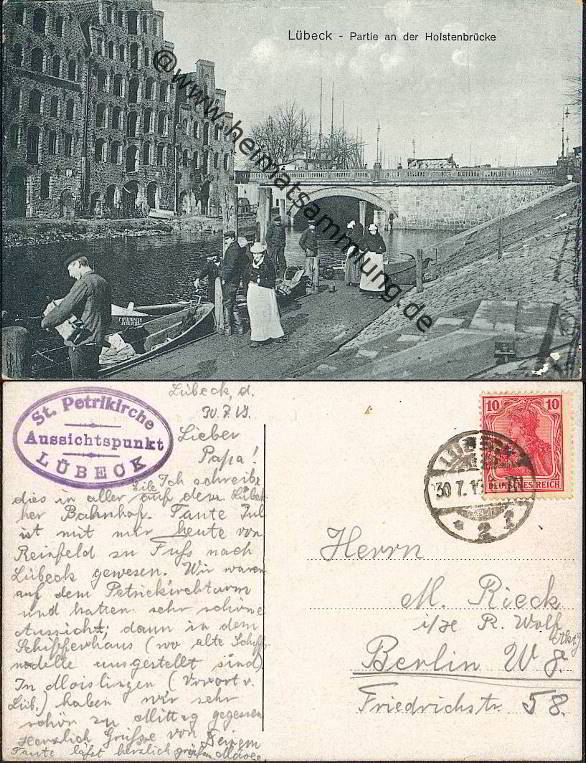 Lübeck - Partie an der Holstenbrücke
© www.heimatsammlung.de
St. Petrikirche
Aussichtspunkt
LÜBECK
Lübeck, d.
30.7.13.
Lieber
Papa!
Ich schreibe
dies in aller Eile auf dem Lübek
ker Bahnhof. Tante Jul
ist mit mir heute von
Reinfeld zu Fuss nach
Lübeck gewesen. Wir waren
auf dem Petrikirchturm
und hatten sehr schöne
Aussicht, dann in dem
Schifferhaus (wo alte Schiffs
modelle ausgestellt sind)
In Moislingen (Vorort v.
Lüb.) haben wir sehr
schön zu Mittag gegessen
Herzlich Grüsse von Deinem
Tante läßt herzlich grüßen
10 10
DEUTSCHES REICH
LÜBECK
30.7.13
* 2 f
Herrn
M. Rieck
i/H R. Wolf
Berlin W 8.
Friedrichstr. 58.